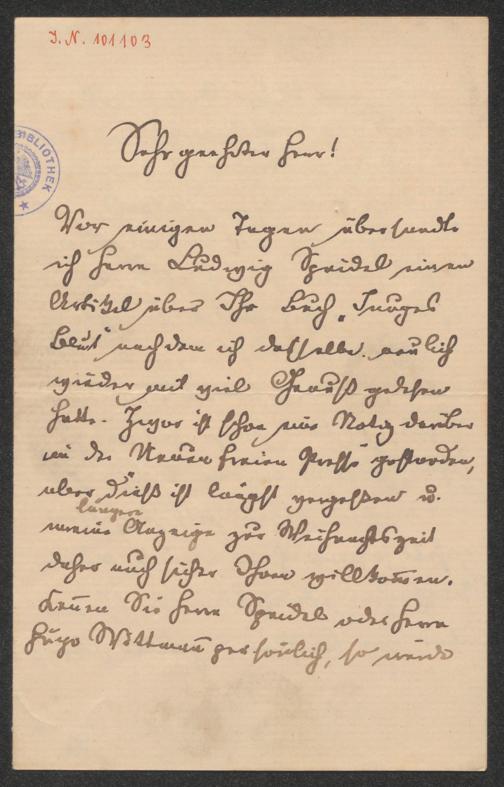 J. N. 101103
BIBLIOTHEK
Sehr geehrter Herr!
Vor einigen Tagen übersandte
ich Herrn Ludwig Speidel einen
Artikel über Ihr Buch „Junges
Blut" nachdem ich dasselbe neulich
wieder mit viel Genuß gelesen
hatte. Zwar ist schon eine Notiz darüber
in der Neuen freien Presse gestanden,
aber dieß ist längst vergeßen u.
längere
meine Anzeige zur Weihnachtszeit
daher auch sicher Ihnen willkom̄en.
Ken̄en Sie Herrn Speidel oder Herrn
Hugo Wittman̄ persönlich, so würde